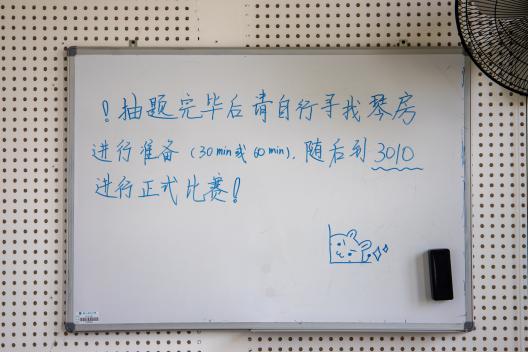 ！抽题完毕后请自行寻找琴房
进行准备（30min或60min），随后到3010
进行正式比赛！